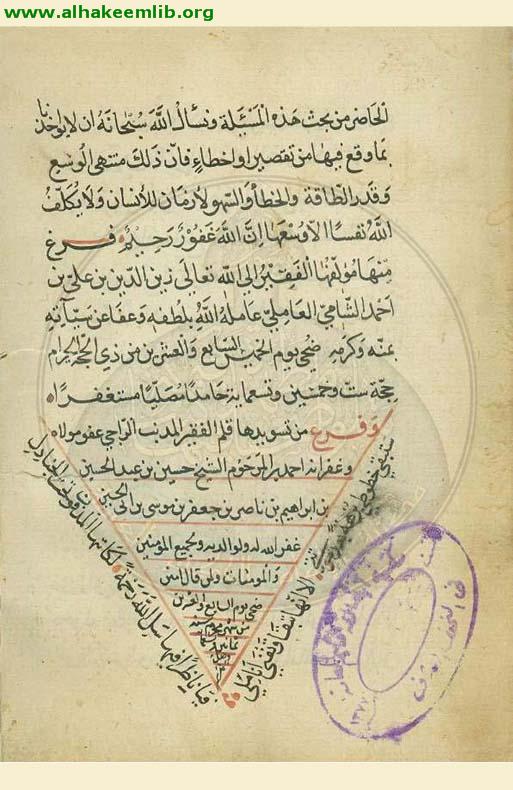 www.alhakeemlib.org
الحاضر من بحث هذه المسئلة ونسأل الله سبحانه ان لا يؤاخذنا
بما وقع فيها من تقصير او اخطاء فان ذلك منتهى الوسع
وقدر الطاقة والخطأ والسهو لازمان للانسان ولا يكلف
الله نفسا الا وسعها ان الله غفور رحيم فرغ
منها مؤلفها الفقير الى الله تعالى زين الدين بن علي بن
احمد الشامي العاملي عامله الله بلطفه وعفا عن سيآته
بمنه وكرمه ضحى يوم الخميس السابع والعشرين من ذي الحجة الحرام
حجة ست وخمسين وتسعماية حامدا مصليا مستغفرا
وفرغ من تسويدها قلم الفقير المذنب الراجي عفو مولاه
وغفرانه احمد بن المرحوم الشيخ حسين بن عبد الحسين
بن ابراهيم بن ناصر بن جعفر بن موسى
غفر الله له ولوالديه ولجميع المؤمنين
والمومنات ولمن قال امين
ضحى يوم السابع والعشرين
من شهر
ستبقى خطوطي
الا انها تبقى وتفنى اناملي
فيا ناظرا فيها سل الله رحمة
لكاتبها المدفون تحت الجنادل
١٣٧٧